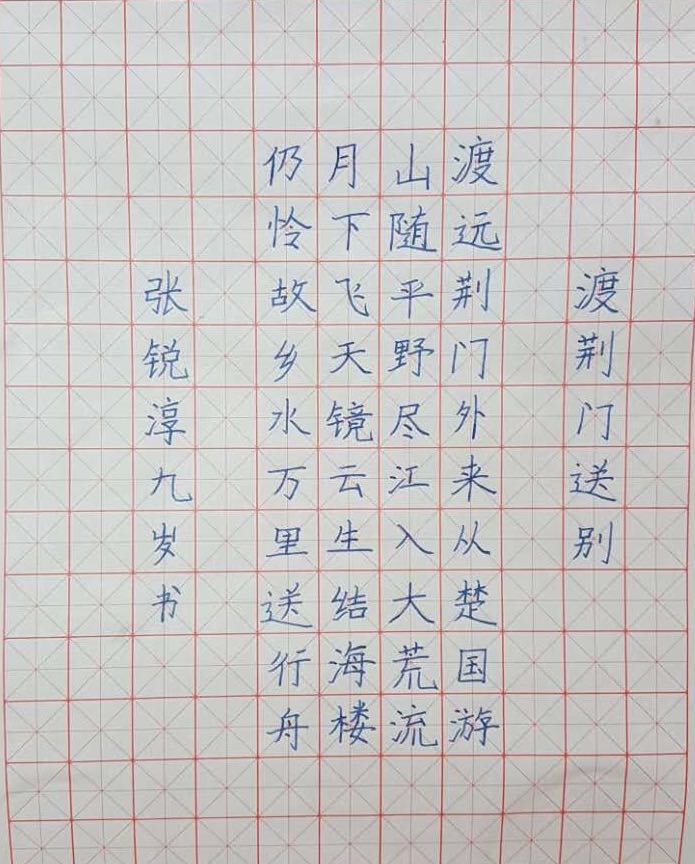 渡荆门送别
渡远荆门外来从楚国游
山随平野尽江入大荒流
月下飞天镜云生结海楼
仍怜故乡水万里送行舟
张锐淳九岁书